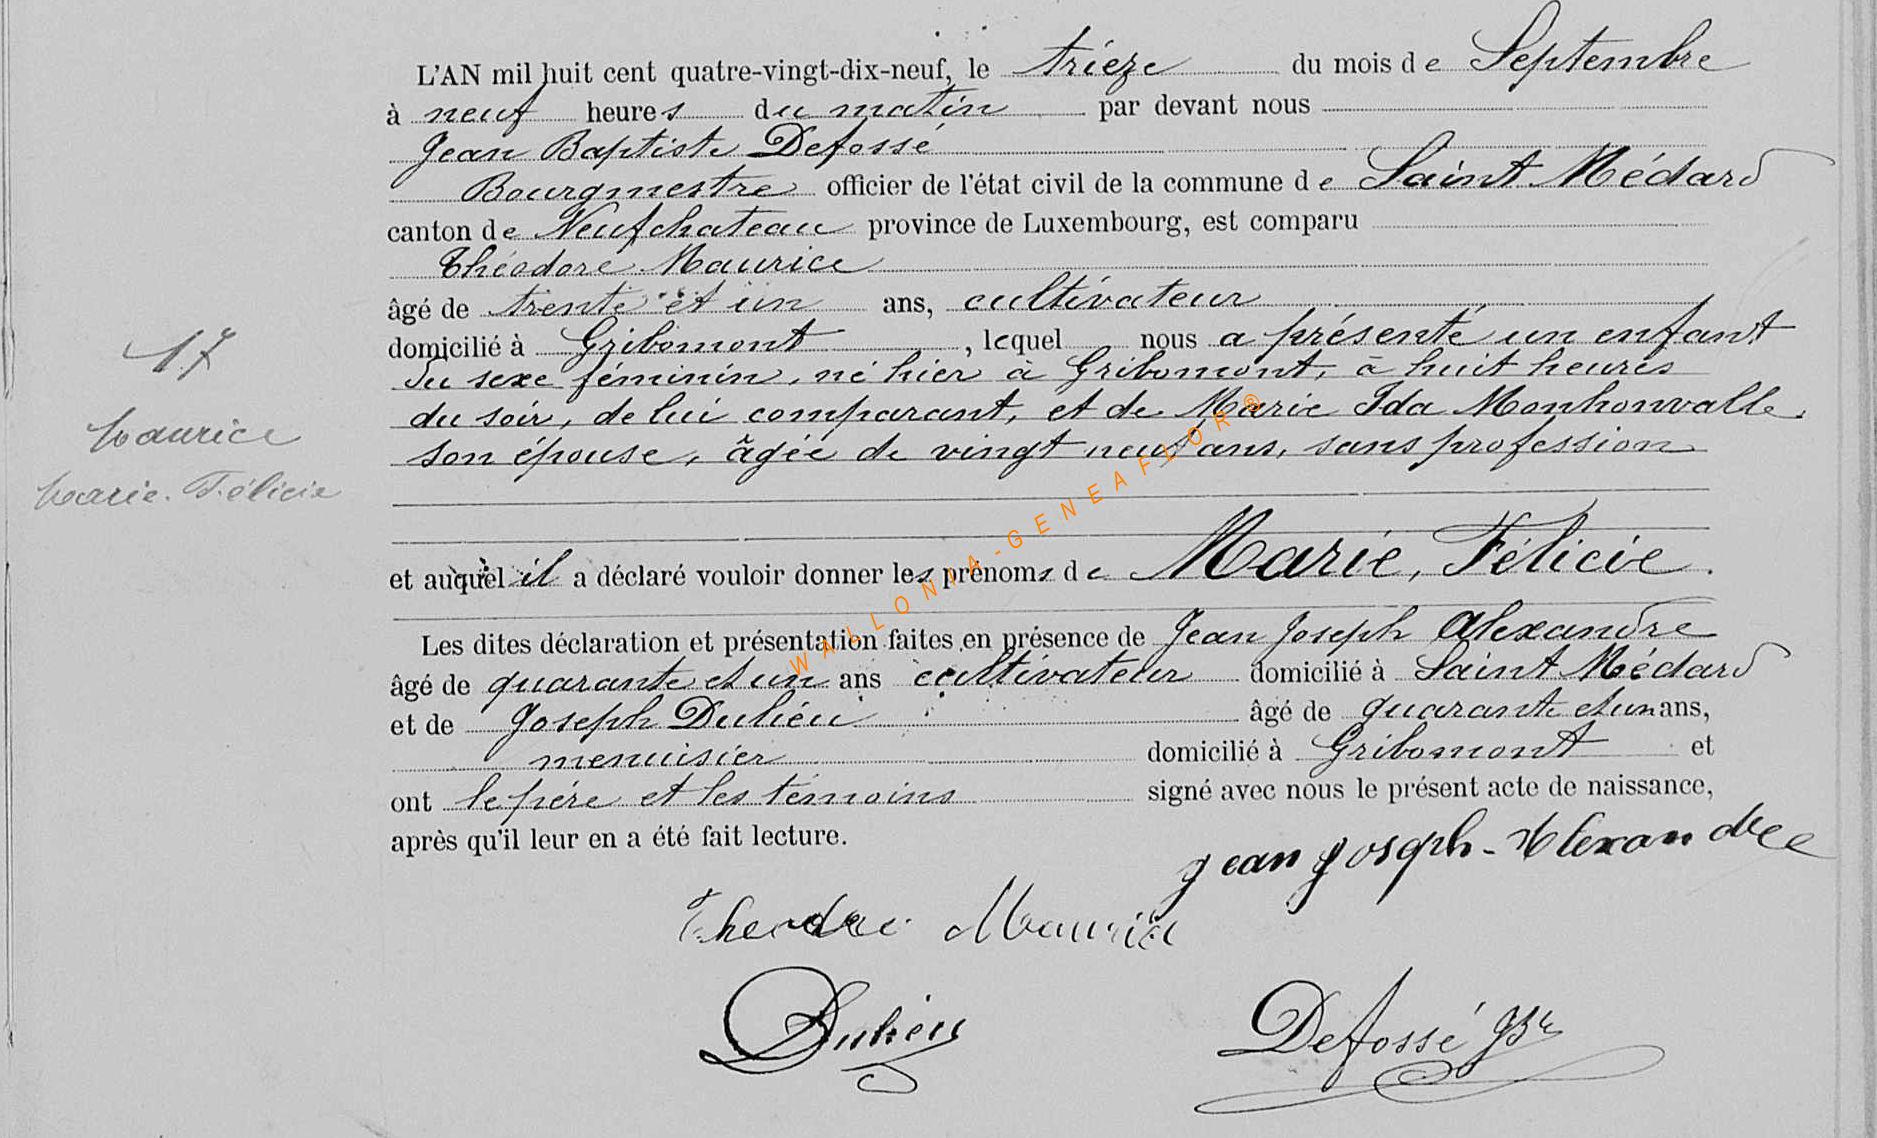 L'AN mil huit cent quatre-vingt-dix-neuf, le trèize du mois de Septembre
à neuf heures du matin par devant nous
Jean Baptiste Defossé
Bourgmestre officier de l'état civil de la commune de Saint Médard
canton de Neufchateau province de Luxembourg, est comparu
Théodore Maurice
âgé de trente et un ans, cultivateur
domicilié à Gribomont, lequel nous a présenté un enfant
du sexe féminin, né hier à Gribomont, à huit heures
du soir, de lui comparant, et de Marie Ida Monhonvalle,
son épouse, âgée de vingt neuf ans, sans profession
17
Maurice
Marie. Félicie
et auquel il a déclaré vouloir donner les prénoms de Marie, Félicie.
Les dites déclaration et présentation faites en présence de Jean Joseph Alexandre
âgé de quarante et un ans cultivateur domicilié à Saint Médard
et de Joseph Dulieu âgé de quarante et un ans,
menuisier domicilié à Gribomont et
ont le père et les témoins signé avec nous le présent acte de naissance,
après qu'il leur en a été fait lecture.
Jean Joseph-Alexandre
Theodore Maurice
Dulieu
Defossé JB
WALLONIA-GENEAFLOR®